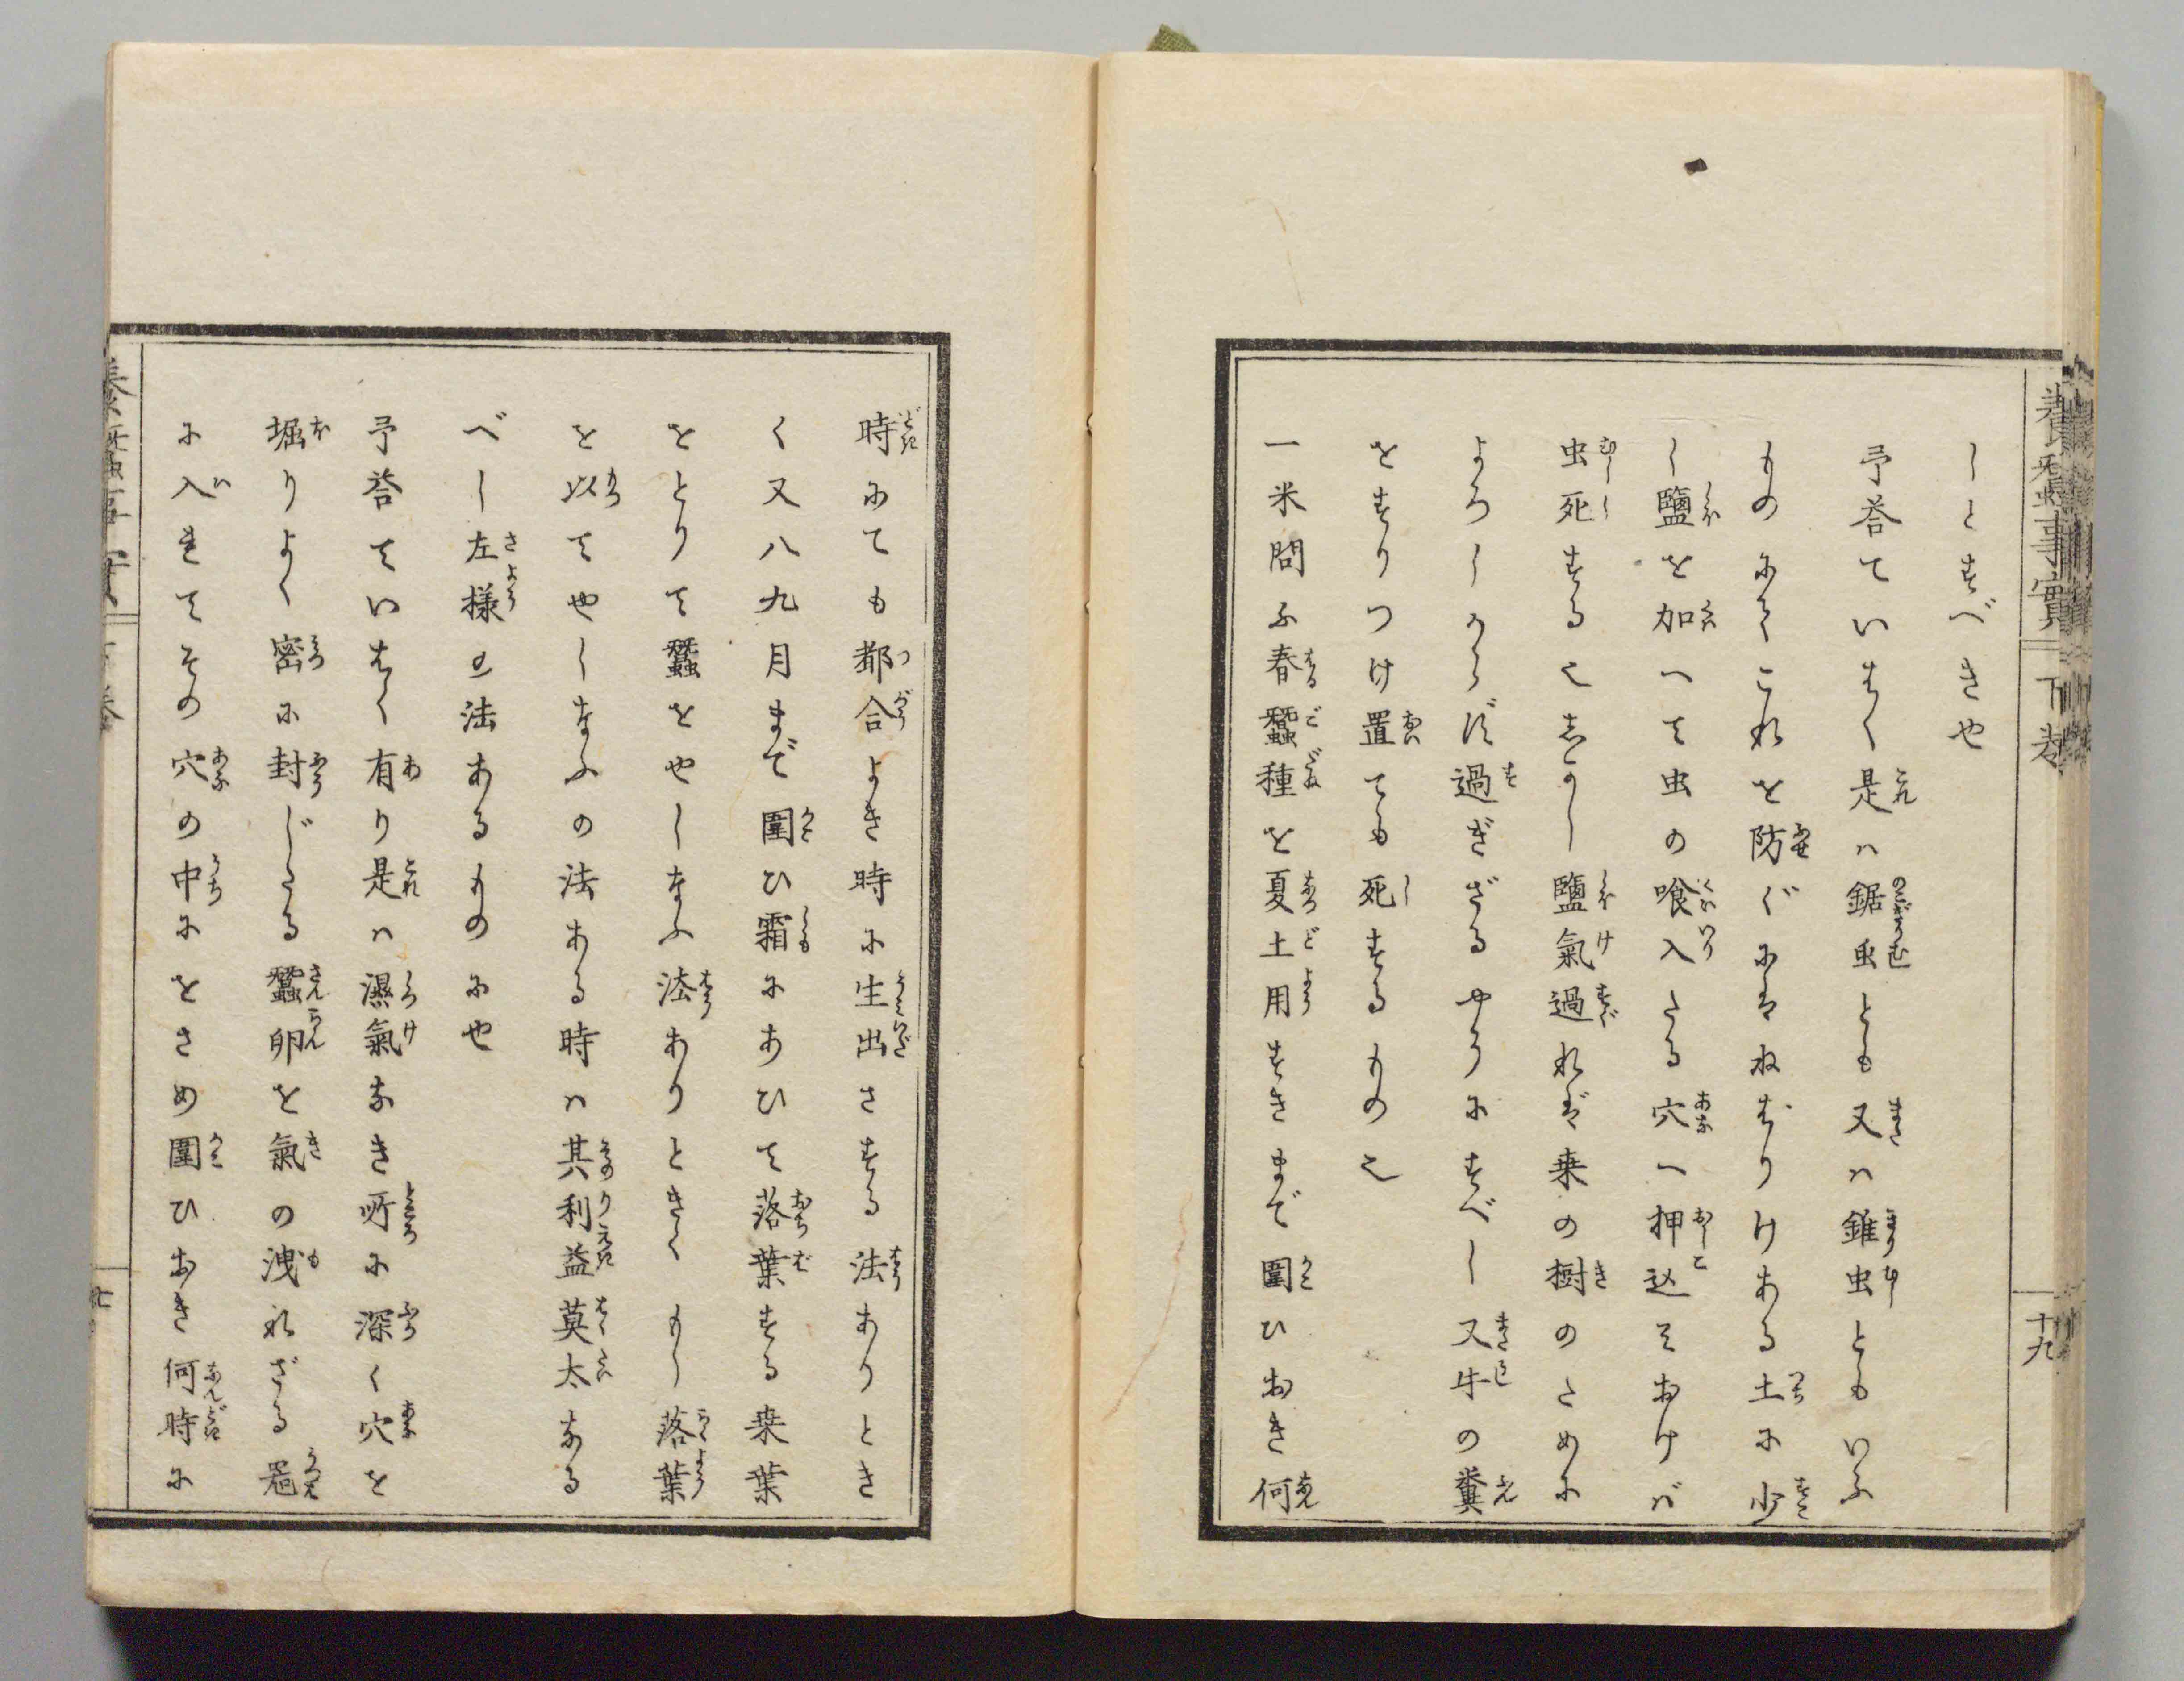 養蚕事實 下巻 十九
しとすべきや
予答ていはく是ハ鋸虫とも又ハ錐虫ともいふ
ものにてこれを防ぐにはねばりけある土に少
し鹽を加へて虫の喰入たる穴へ押込ておけバ
虫死する也しかし鹽氣過れば桒の樹のために
よろしからず過ぎざるやうにすべし又牛の糞
をすりつけ置ても死するもの也
一米問ふ春蠶種を夏土用すきまで圍ひおき何
時にても都合よき時に生出さする法ありとき
く又八九月まで圍ひ霜にあひて落葉する桒葉
をとりて蠶をやしなふ法ありときくもし落葉
を以てやしなふの法ある時ハ其利益莫太なる
べし左様の法あるものにや
予答ていはく有り是ハ濕氣なき所に深く穴を
堀りよく密に封じたる蠶卵を氣の洩れざる器
に入れてその穴の中にをさめ圍ひおき何時に